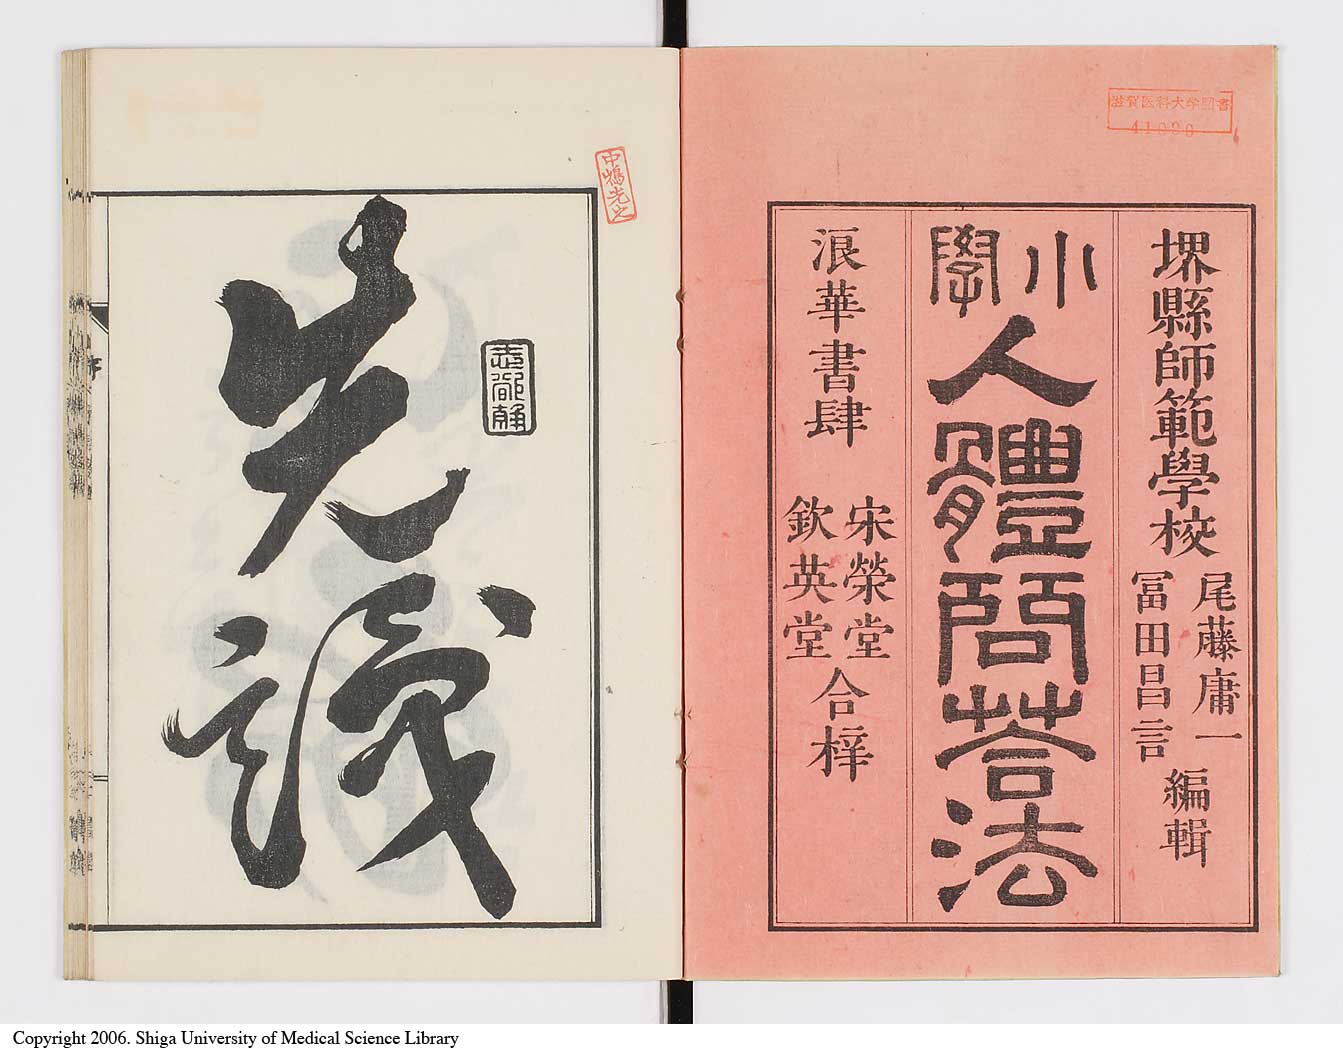 滋賀医科大学図書
41020
堺縣師範學校
尾藤庸一
冨田昌言
編輯
小學
人體問荅法
浪華書肆
宋榮堂
欽英堂
合梓
先識
Copyright 2006. Shiga University of Medical Science Library